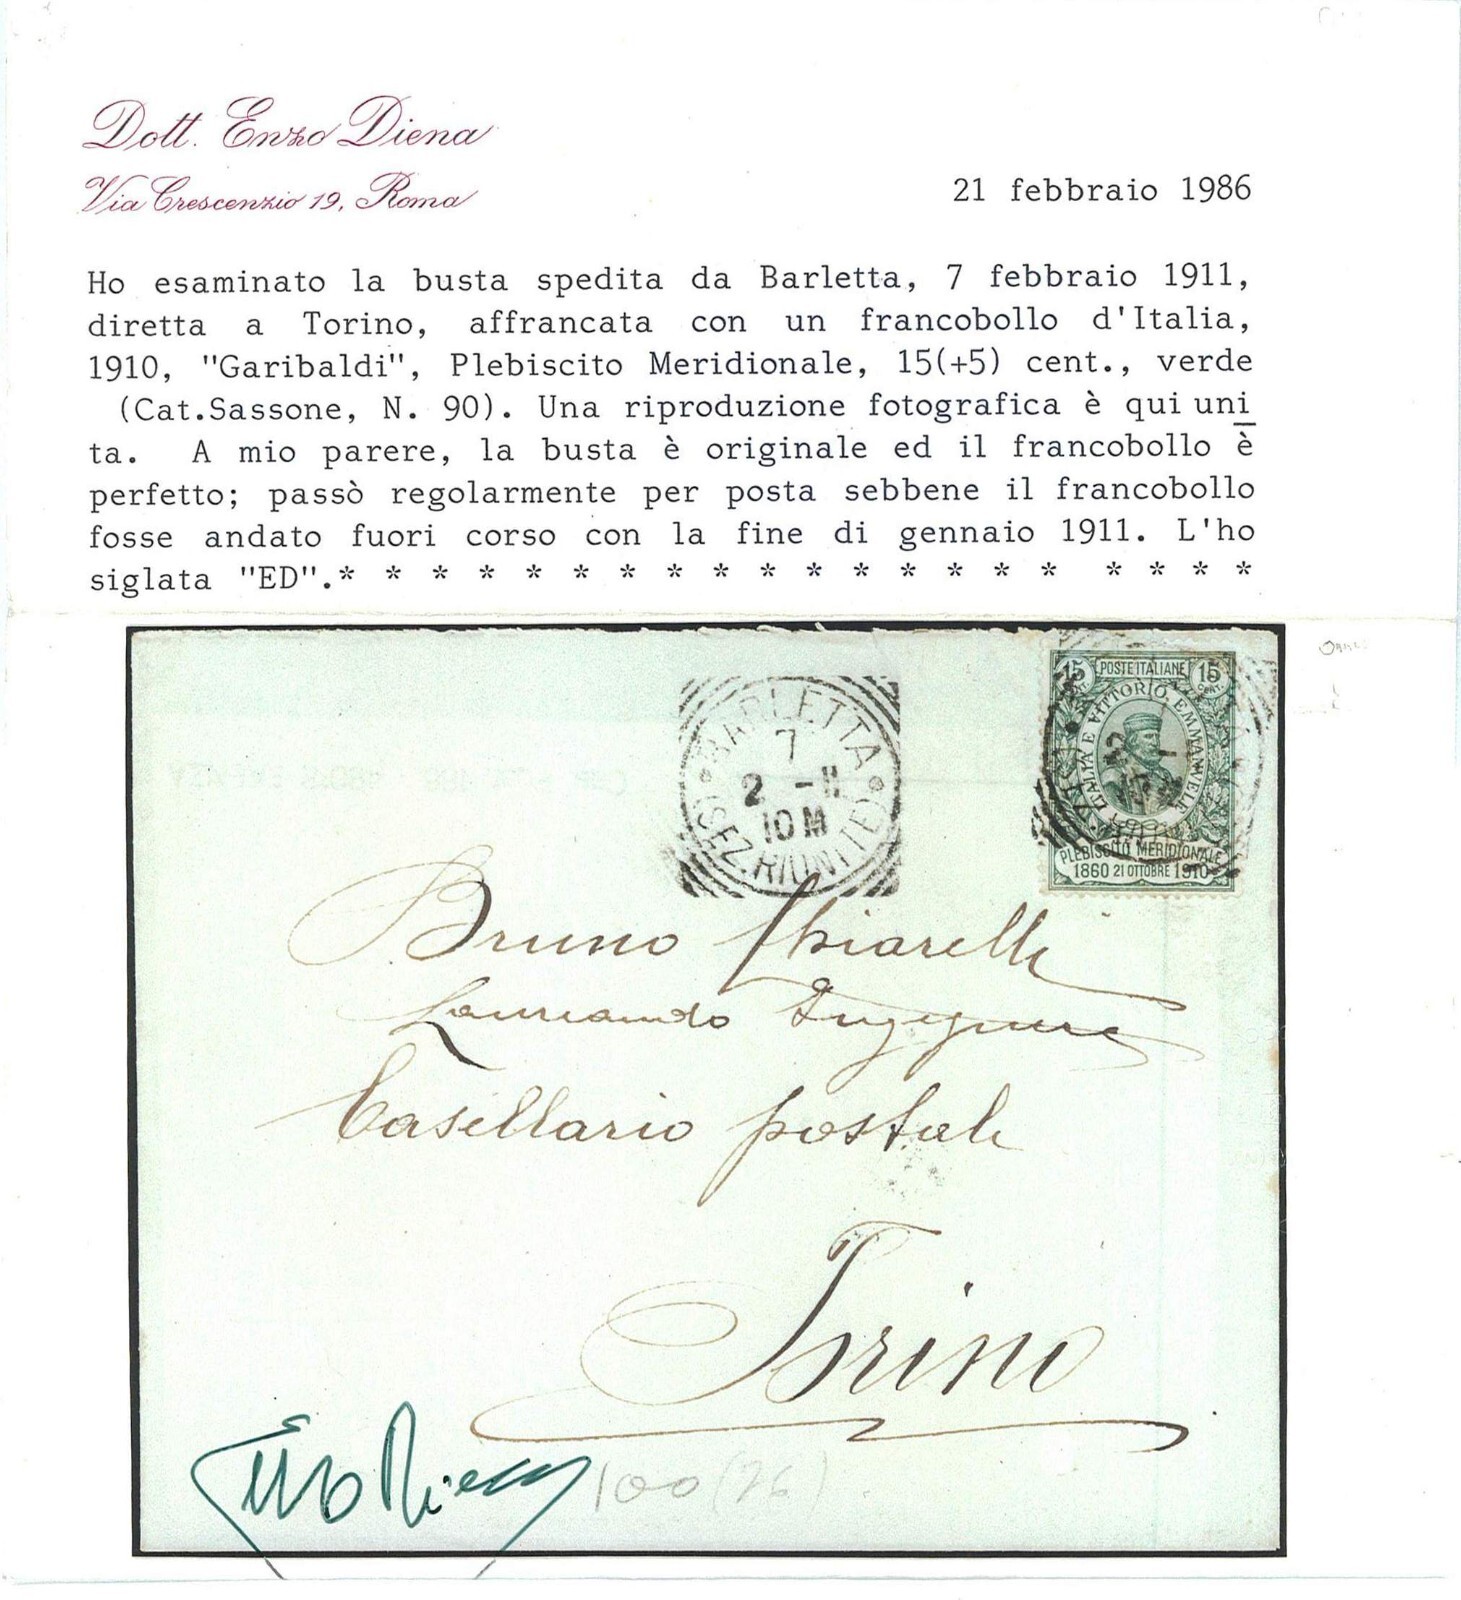 Dott. Enzo Diena
Via Crescenzio 19, Roma
21 febbraio 1986
Ho esaminato la busta spedita da Barletta, 7 febbraio 1911,
diretta a Torino, affrancata con un francobollo d'Italia,
1910, "Garibaldi", Plebiscito Meridionale, 15(+5) cent., verde
(Cat.Sassone, N. 90). Una riproduzione fotografica è qui uni
ta. A mio parere, la busta è originale ed il francobollo è
perfetto; passò regolarmente per posta sebbene il francobollo
fosse andato fuori corso con la fine di gennaio 1911. L'ho
siglata "ED".* * * * * * * * * * * * * * * * * * * *
BARLETTA
7
2 - 11
10 M
(SEZ. RIUNITE)
15 CENT. POSTE ITALIANE 15 CENT.
ITALIA E VITTORIO EMMANUELE
PLEBISCITO MERIDIONALE
1860 21 OTTOBRE 1910
Bruno Chiarelli
Laureando Ingegnere
Casellario postale
Torino
Enzo Diena
100 (76)